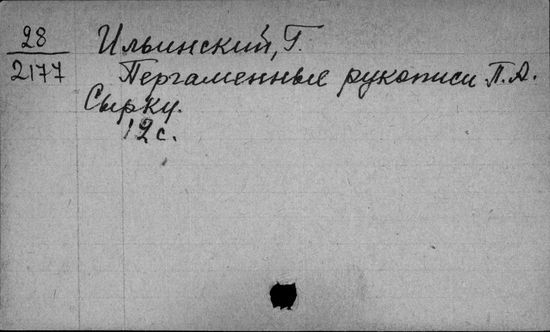 28
2177
Ильинский, Г.
Пергаменные рукописи П. А.
Сырку.
12 с.